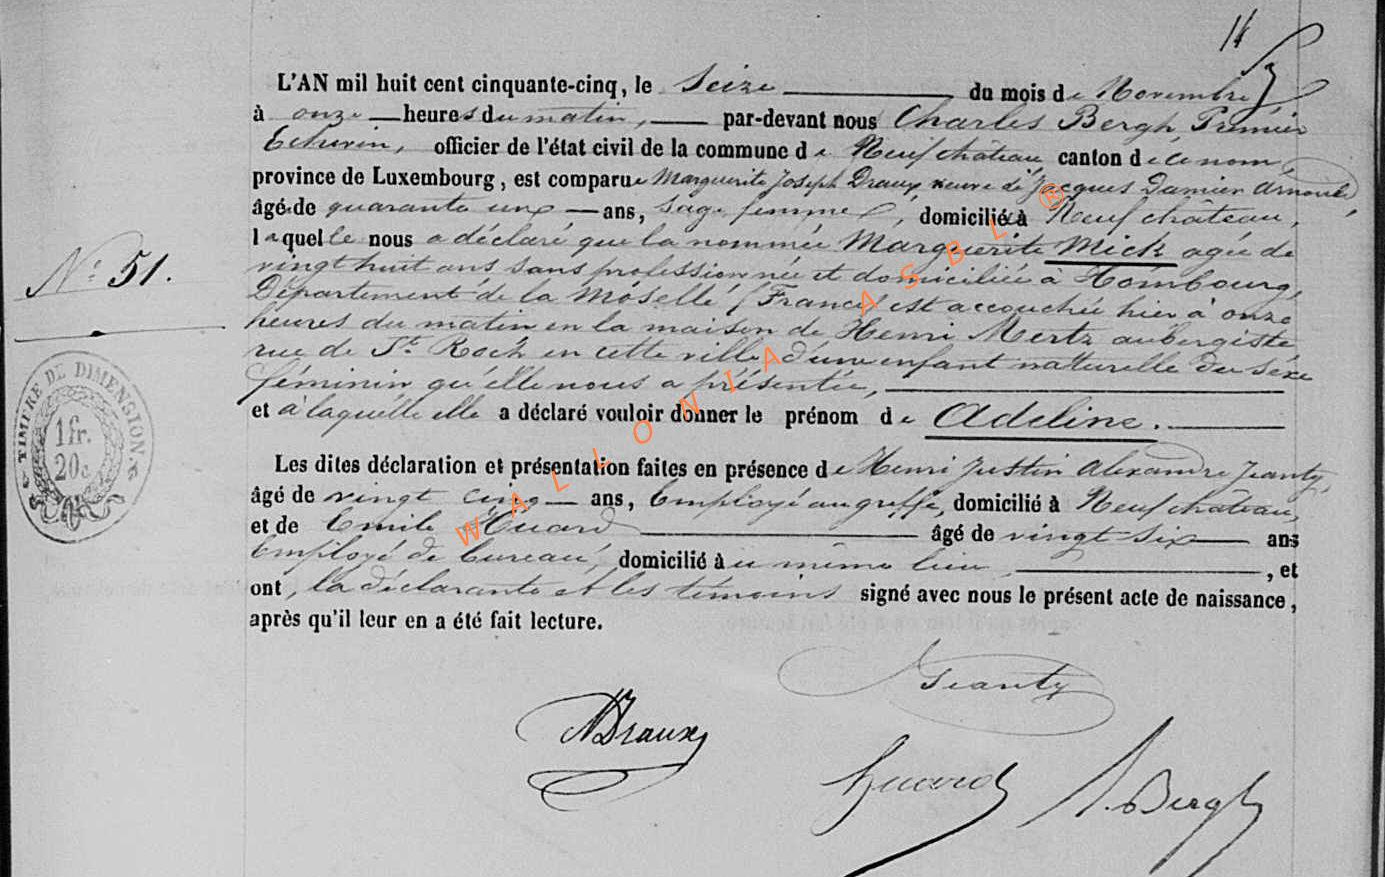 14
L'AN mil huit cent cinquante-cinq, le Seize du mois de Novembre
à onze heures du matin, par-devant nous Charles Bergh, Premier
Echevin, officier de l'état civil de la commune de Neufchâteau canton de ce nom,
province de Luxembourg, est comparue Marguerite Joseph Draux veuve de Jacques Damien Arnould,
âgé de quarante un ans, Sage femme, domiciliée à Neufchâteau,
laquelle nous a déclaré que la nommée Marguerite Mick agée de
vingt huit ans sans profession née et domiciliée à Hombourg,
Département de la Moselle (France) est accouchée hier à onze
heures du matin en la maison de Henri Mertz aubergiste
rue de St. Roch en cette ville d'une enfant naturelle du séxe
féminin qu'elle nous a présentée,
et à laquelle elle a déclaré vouloir donner le prénom de Adeline.
N° 51.
TIMBRE DE DIMENSION
1 fr.
20 c
Les dites déclaration et présentation faites en présence de Henri Justin Alexandre Jeanty,
âgé de vingt cinq ans, Employé au greffe, domicilié à Neufchâteau,
et de Emile Huard âgé de vingt-six ans
Employé de bureau, domicilié au même lieu, et
ont, la déclarante et les témoins signé avec nous le présent acte de naissance,
après qu'il leur en a été fait lecture.
Jeanty
Draux
Huard
Bergh
WALLONIA ASBL ®